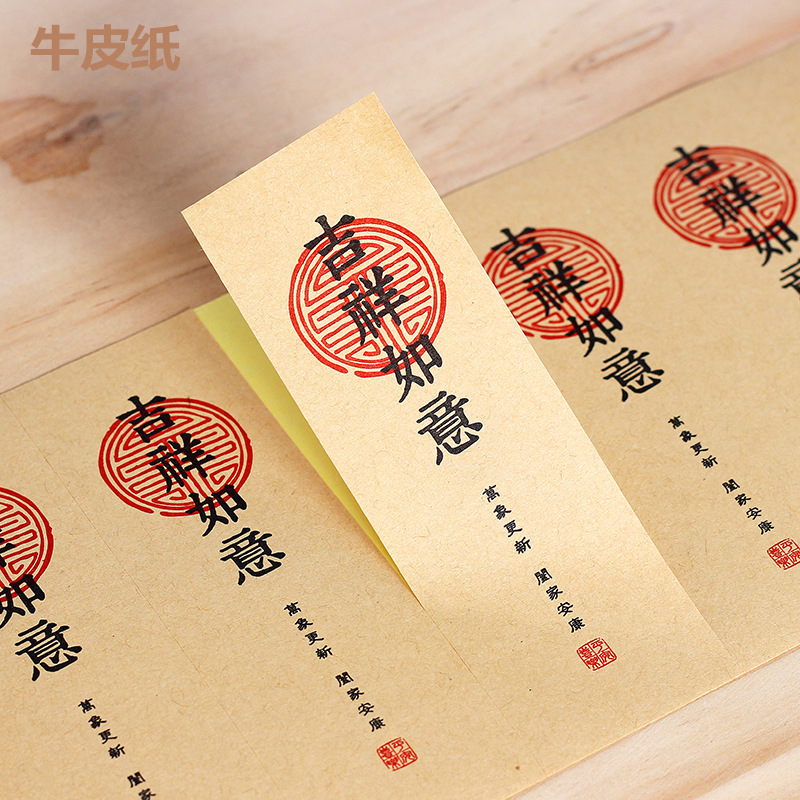 牛皮纸
祥如意
萬象更新 闔家
吉祥如意
萬象更新 闔家安康
吉祥如意
萬象更新 闔家安康
吉祥如意
萬象更新 闔家安康
吉祥如意